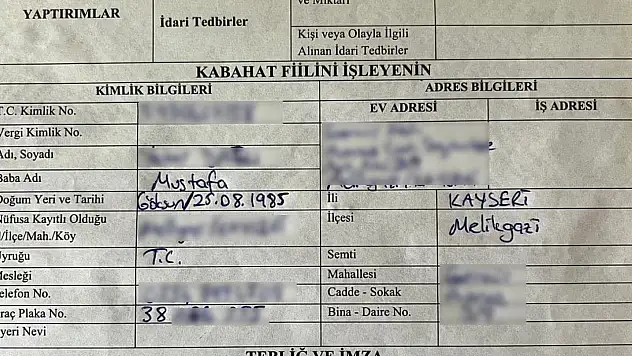 ve Miktarı
YAPTIRIMLAR
İdari Tedbirler
Kişi veya Olayla İlgili
Alınan İdari Tedbirler
KABAHAT FİİLİNİ İŞLEYENİN
KİMLİK BİLGİLERİ
ADRES BİLGİLERİ
T.C. Kimlik No.
EV ADRESİ
İŞ ADRESİ
Vergi Kimlik No.
Adı, Soyadı
Baba Adı Mustafa
Doğum Yeri ve Tarihi Göksun/25.08.1985
İli KAYSERİ
Nüfusa Kayıtlı Olduğu
İl/İlçe/Mah./Köy
İlçesi Melikgazi
Uyruğu T.C.
Semti
Mesleği
Mahallesi
Telefon No.
Cadde - Sokak
Araç Plaka No. 38
Bina - Daire No.
İşyeri Nevi
TEBLİĞ VE İMZA